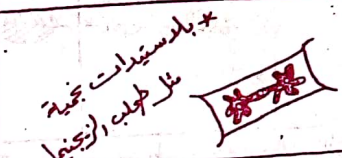 * بلاستيدات نجمية
مثل طحلب الزيجنيما